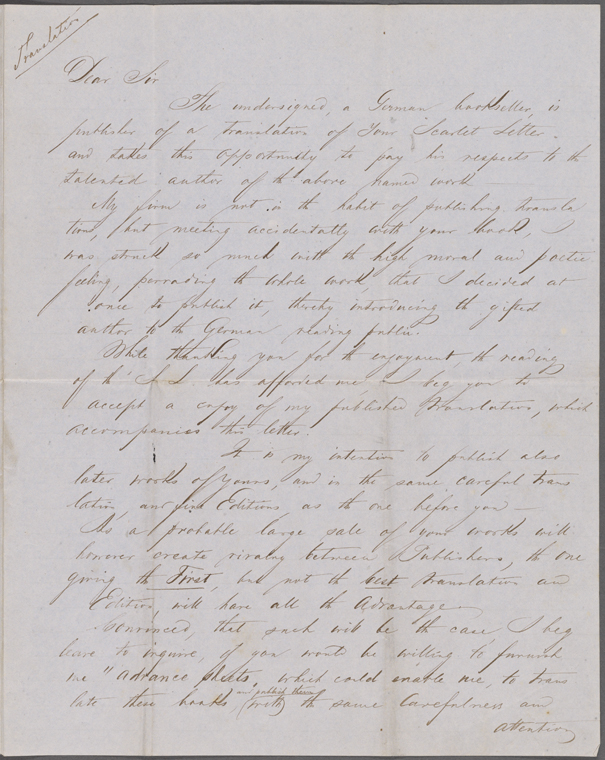 Translation
Dear Sir
The undersigned, a German bookseller, is
publisher of a translation of Your "Scarlet Letter".
and takes this opportunity to pay his respects to th
talented author of th above named work —
My firm is not in the habit of publishing transla
tion, but meeting accidentally with your book, I
was struck so much with th high moral and poetic
feeling, pervading th whole work, that I decided at
once to publish it, thereby introducing th gifted
author to th German reading public.
While thanking you for th enjoyment, th reading
of th S. L. has afforded me I beg you to
accept a copy of my published translation, which
accompanies this letter.
It is my intention to publish also
later works of yours, and in the same careful trans
lation, and fine Editions, as th one before you —
As a probable large sale of your works will
however create rivalry between Publishers, th one
giving th First, but not th best translation and
Edition, will have all th advantage —
Convinced, that such will be th case, I beg
leave to inquire, if you would be willing to furnish
me "advance sheets, which could enable me, to trans
late these books and publish them (with) th same carefulness and
attention